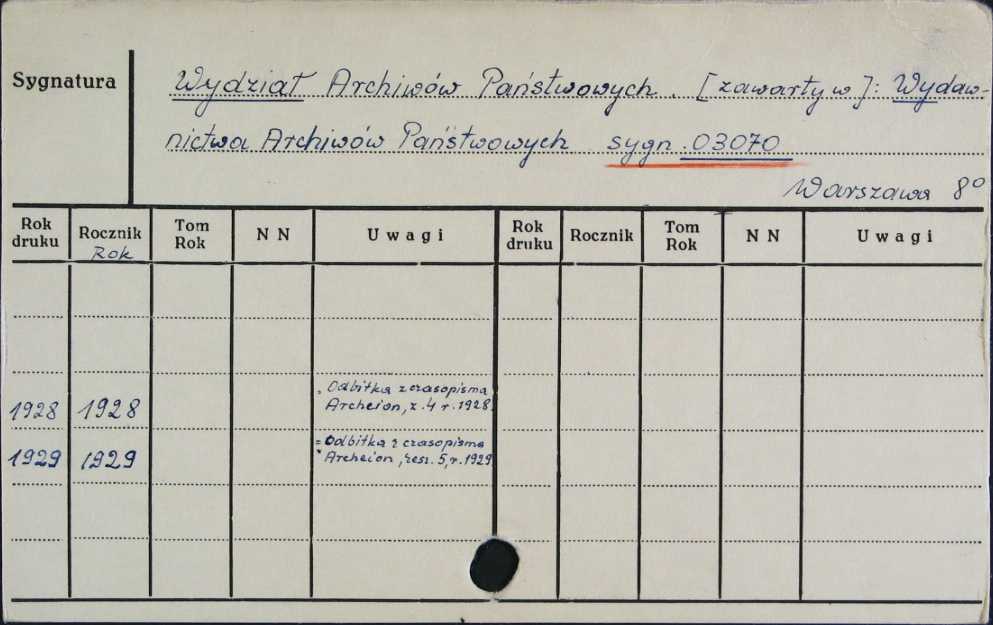 Sygnatura
Wydział Archiwów Państwowych. [zawarty w]: Wydaw-
nictwa Archiwów Państwowych sygn. 03070
Warszawa 8°
Rok druku Rocznik Rok Tom Rok N N Uwagi Rok druku Rocznik Tom Rok N N Uwagi
Odbitka z czasopisma
1928 1928 Archeion, z. 4 r. 1928
= Odbitka z czasopisma
1929 1929 Archeion, zesz. 5, r. 1929